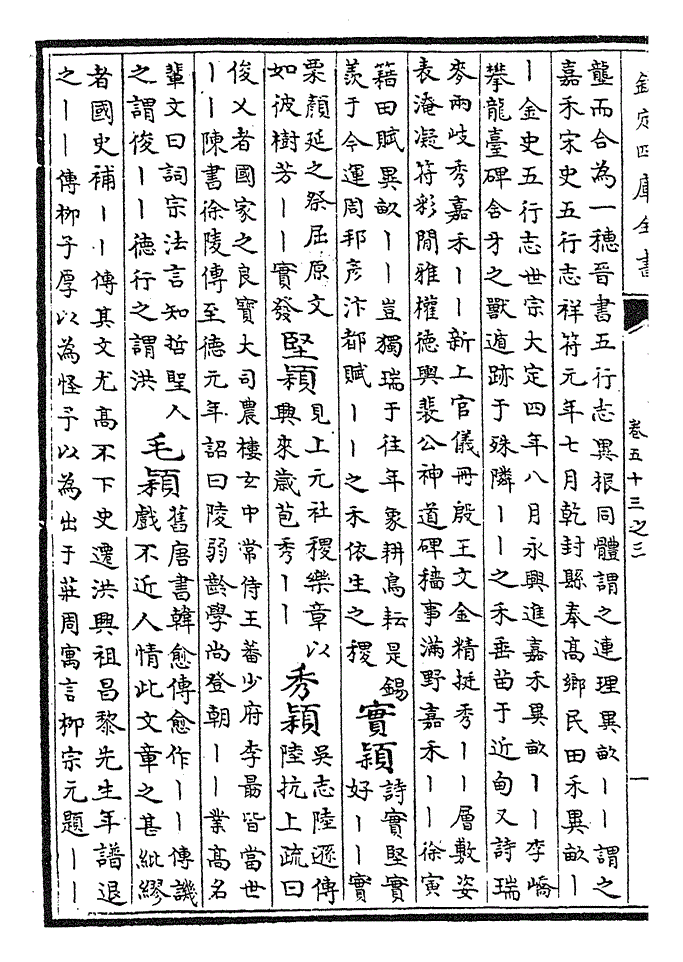 欽定四庫全書 卷五十三之三 一
壟而合為一穗晉書五行志異根同體謂之連理異畝丨丨謂之
嘉禾宋史五行志祥符元年七月乾封縣奉髙鄉民田禾異畝丨
丨金史五行志世宗大定四年八月永興進嘉禾異畝丨丨李嶠
攀龍臺碑含牙之獸遁跡于殊隣丨丨之禾垂苗于近甸又詩瑞
麥兩岐秀嘉禾丨丨新上官儀冊殷王文金精挺秀丨丨層敷姿
表淹凝符彩閒雅權徳輿裴公神道碑穡事滿野嘉禾丨丨徐寅
籍田賦異畝丨丨豈獨瑞于往年象耕鳥耘是錫
羨于今運周邦彦汴都賦丨丨之禾依生之稷
實穎
詩實堅實
好丨丨實
栗顔延之祭屈原文
如彼樹芳丨丨實發
堅穎
見上元社稷樂章以
興來歲苞秀丨丨
秀穎
吳志陸遜傳
陸抗上疏曰
俊乂者國家之良寶大司農樓玄中常侍王蕃少府李勗皆當世
丨丨陳書徐陵傳至徳元年詔曰陵弱齡學尚登朝丨丨業髙名
輩文曰詞宗法言知哲聖人
之謂俊丨丨徳行之謂洪
毛穎
舊唐書韓愈傳愈作丨丨傳譏
戲不近人情此文章之甚紕繆
者國史補丨丨傳其文尤髙不下史遷洪興祖昌黎先生年譜退
之丨丨傳柳子厚以為怪予以為出于莊周寓言柳宗元題丨丨